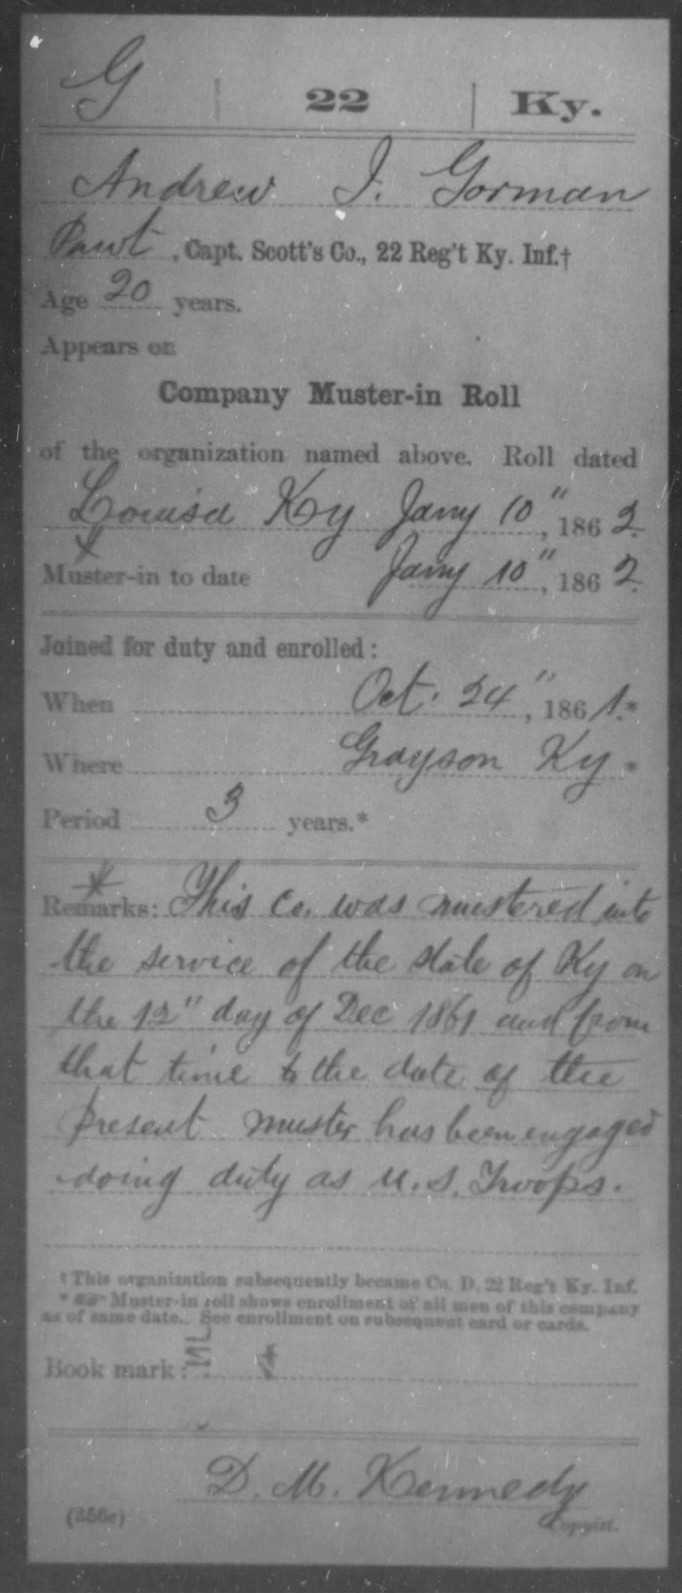 G | 22 | Ky.
Andrew J. Gorman
Pvut, Capt. Scott's Co., 22 Reg't Ky. Inf.†
Age 20 years.
Appears on
Company Muster-in Roll
of the organization named above. Roll dated
Louisa Ky Jany 10", 1862.
Muster-in to date Jany 10", 1862.
Joined for duty and enrolled:
When Oct. 24", 1861.*
Where Grayson Ky.*
Period 3 years.*
Remarks: This Co. was mustered into
the service of the state of Ky on
the 12" day of Dec 1861 and from
that time to the date of the
present muster has been engaged
doing duty as U.S. Troops.
† This organization subsequently became Co. D, 22 Reg't Ky. Inf.
* Muster-in roll shows enrollment of all men of this company
as of same date. See enrollment on subsequent card or cards.
Book mark:
D. M. Kennedy
(356c) Copyist.